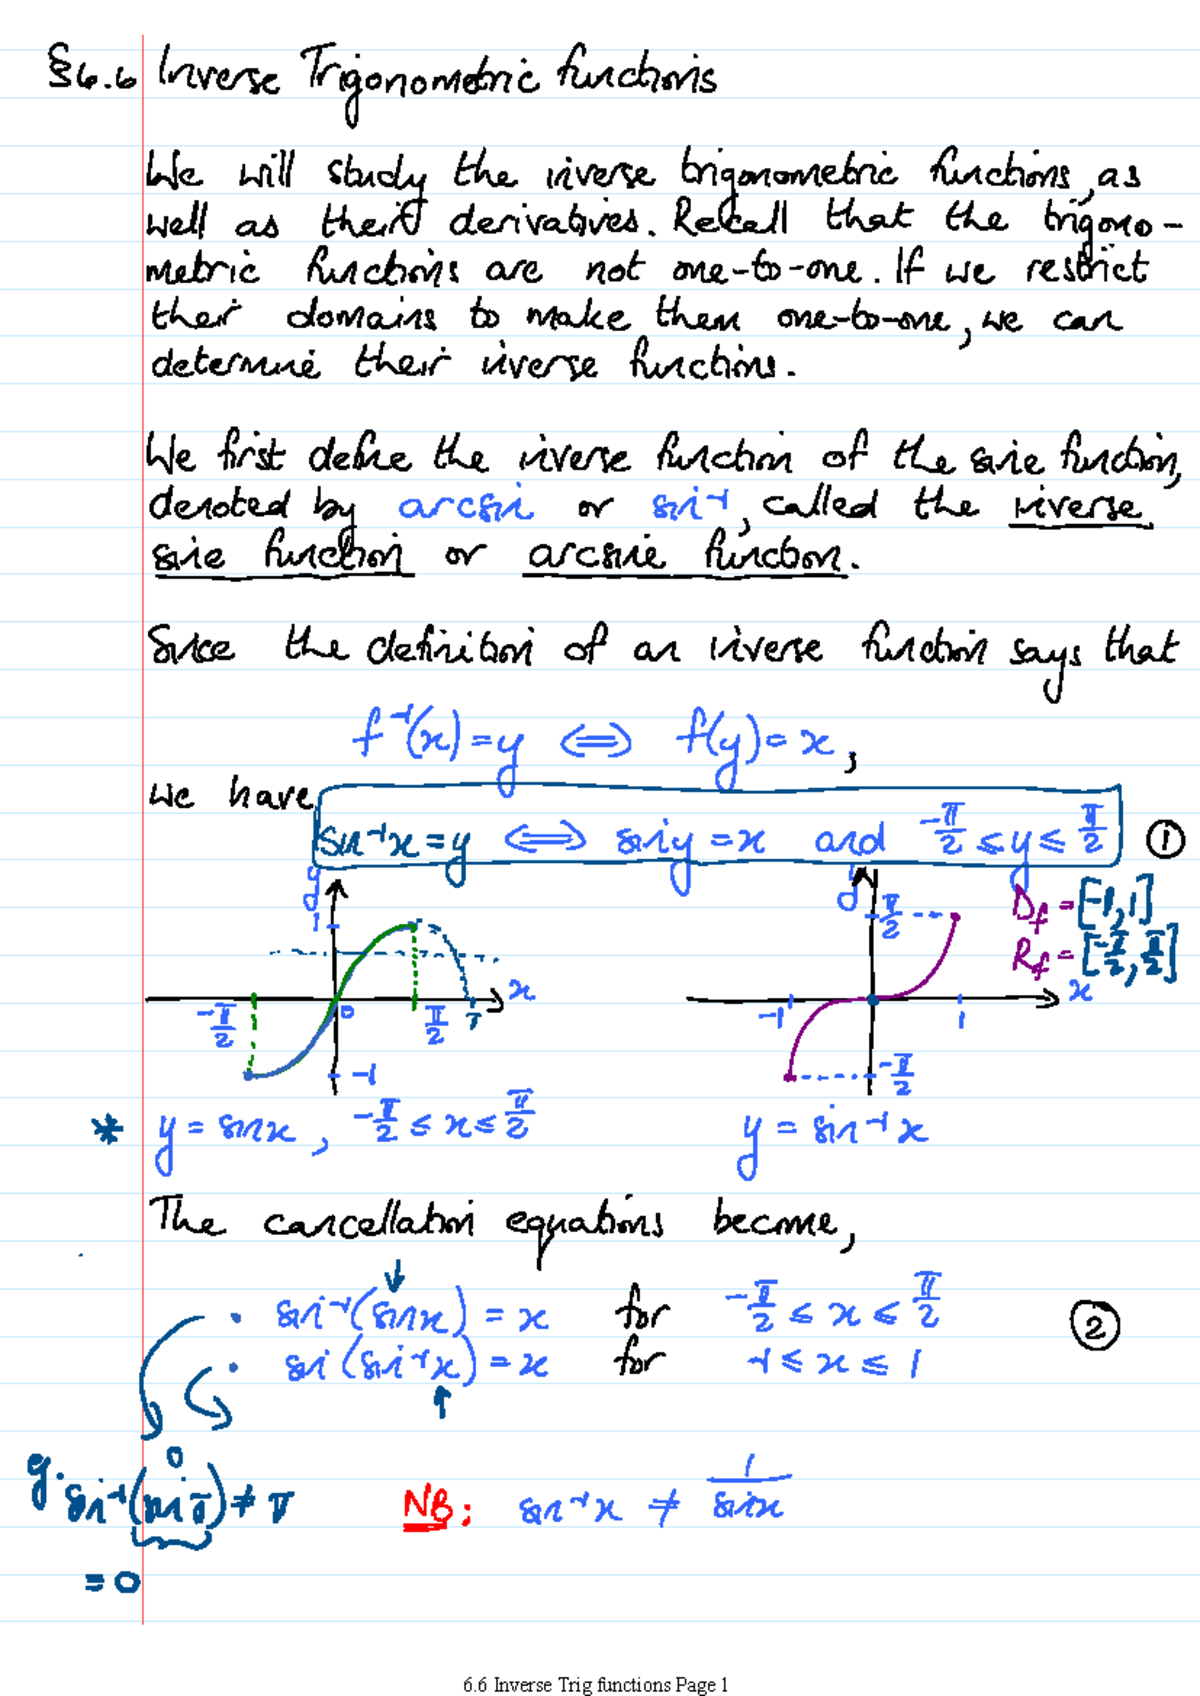 §6.6 Inverse Trigonometric functions
We will study the inverse trigonometric functions, as
well as their derivatives. Recall that the trigono-
metric functions are not one-to-one. If we restrict
their domains to make them one-to-one, we can
determine their inverse functions.
We first define the inverse function of the sine function,
denoted by arcsin or sin⁻¹, called the inverse
sine function or arcsine function.
Since the definition of an inverse function says that
f⁻¹(x) = y ⟺ f(y) = x,
we have
sin⁻¹x = y ⟺ sin y = x and -π/2 ≤ y ≤ π/2 ①
y 1 -π/2 0 π/2 π x -1
y π/2 -1 1 x -π/2
D_f = [-1, 1]
R_f = [-π/2, π/2]
* y = sin x, -π/2 ≤ x ≤ π/2
y = sin⁻¹ x
The cancellation equations become,
• sin⁻¹(sin x) = x for -π/2 ≤ x ≤ π/2 ②
• sin(sin⁻¹x) = x for -1 ≤ x ≤ 1
0
g. sin⁻¹(sin π) ≠ π
= 0
NB: sin⁻¹x ≠ 1/sin x
6.6 Inverse Trig functions Page 1